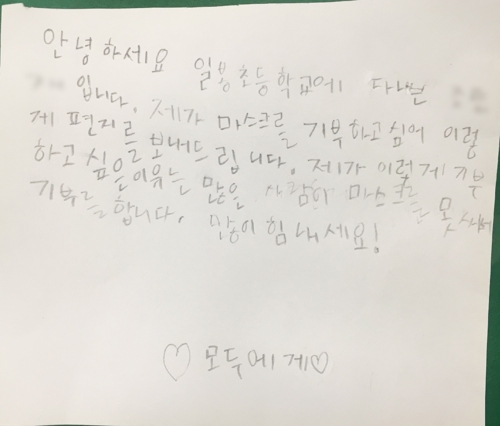 안녕하세요 일봉초등학교에 다니는
입니다. 제가 마스크를 기부하고 싶어 이렇
게 편지를 보내드립니다. 제가 이렇게 기부
하고 싶은이유는 많은 사람이 마스크를 못
기부를 합니다. 많이 힘내세요!
♡모두에게♡